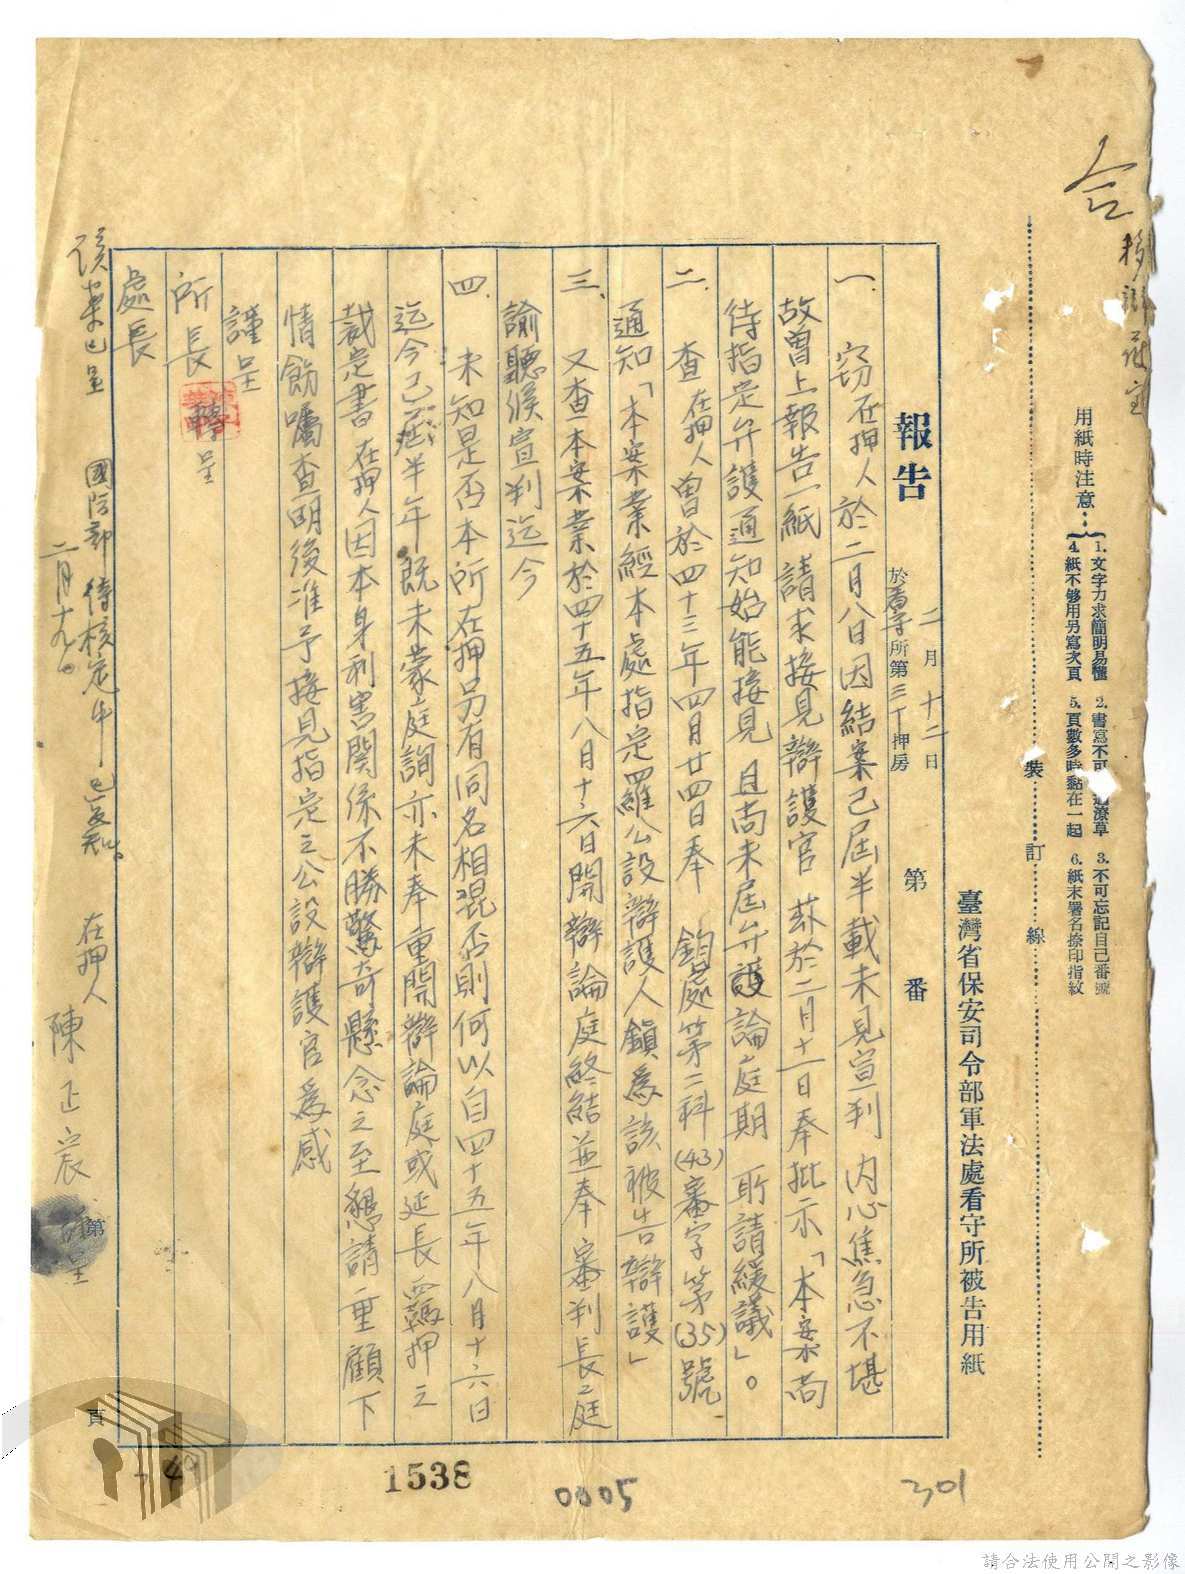 合
用紙時注意：
1. 文字力求簡明易懂 2. 書寫不可 潦草 3. 不可忘記自己番號
4. 紙不够用另寫次頁 5. 頁數多時黏在一起 6. 紙末署名捺印指紋
裝 訂 線
臺灣省保安司令部軍法處看守所被告用紙
報告 二月十二日 於看守所第三十押房 第 番
一. 窃在押人於二月八日因結案已屆半載未見宣判 內心焦急不堪
故曾上報告一紙請求接見辯護官 茲於二月十一日奉批示「本案尚
待指定弁護通知始能接見 且尚未屆弁護論庭期 所請緩議」。
二. 查在押人曾於四十三年四月廿四日奉 鈞處第二科(43)審字第(35)號
通知「本案業經本處指定羅公設辯護人鎮為該被告辯護」
三、又查本案業於四十五年八月十六日開辯論庭終結並奉審判長庭
諭聽候宣判迄今
四. 未知是否本所在押另有同名相混否則何以自四十五年八月十六日
迄今已屆半年既未蒙庭詢亦未奉重開辯論庭或延長羈押之
裁定書 在押人因本身利害關係不勝驚奇懸念之至懇請重顧下
情飭囑查明後准予接見指定之公設辯護官為感
謹呈
所長 轉呈
處長
該案已呈 國防部待核定中 已簽知。
二月十九日。
在押人 陳正宸 謹呈
第 頁
49
1538
0005
301
請合法使用公開之影像